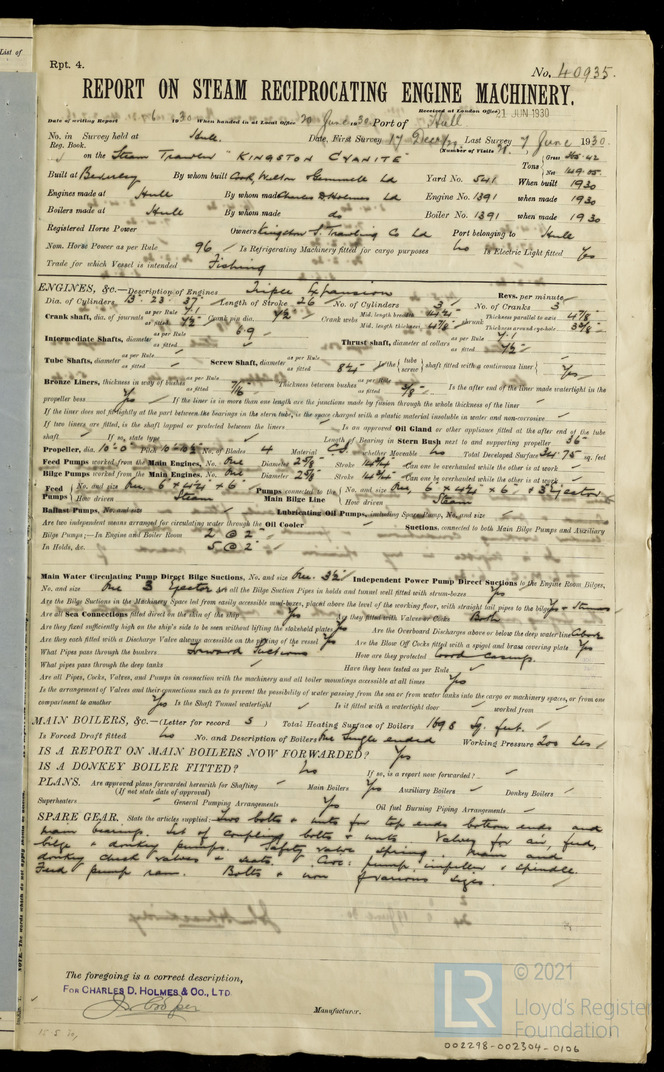 List of
Rpt. 4.
No. 40935.
REPORT ON STEAM RECIPROCATING ENGINE MACHINERY.
Received at London Office 21 JUN 1930
Date of writing Report 6 1930 When handed in at Local Office 20 June 1930 Port of Hull
No. in Survey held at Hull. Date, First Survey 17 Dec Last Survey 7 June 1930
Reg. Book. (Number of Visits
on the Steam Trawler "KINGSTON CYANITE" Tons { Gross 365.42 Net 149.05
Built at Beverley By whom built Cook Welton Gemmell Ld Yard No. 541 When built 1930
Engines made at Hull By whom made Charles D Holmes Ld Engine No. 1391 when made 1930
Boilers made at Hull By whom made do Boiler No. 1391 when made 1930
Registered Horse Power Owners Kingston S Trawling Co Ld Port belonging to Hull
Nom. Horse Power as per Rule 96 Is Refrigerating Machinery fitted for cargo purposes No Is Electric Light fitted Yes
Trade for which Vessel is intended Fishing
ENGINES, &c.—Description of Engines Triple Expansion Revs. per minute
Dia. of Cylinders 13" 23" 37" Length of Stroke 26" No. of Cylinders 3 No. of Cranks 3
Crank shaft, dia. of journals as per Rule 7.1 as fitted 7½" Crank pin dia. 7½" Crank webs Mid. length breadth Mid. length thickness 4⅞" shrunk Thickness parallel to axis 4⅞" Thickness around eye-hole
Intermediate Shafts, diameter as per Rule as fitted Thrust shaft, diameter at collars as per Rule 7.1 as fitted 7½"
Tube Shafts, diameter as per Rule as fitted Screw Shaft, diameter as per Rule as fitted 8¼" Is the { tube screw } shaft fitted with a continuous liner { Yes
Bronze Liners, thickness in way of bushes as per Rule as fitted 7/16" Thickness between bushes as per Rule as fitted Is the after end of the liner made watertight in the
propeller boss Yes If the liner is in more than one length are the junctions made by fusion through the whole thickness of the liner
If the liner does not fit tightly at the part between the bearings in the stern tube, is the space charged with a plastic material insoluble in water and non-corrosive
If two liners are fitted, is the shaft lapped or protected between the liners Is an approved Oil Gland or other appliance fitted at the after end of the tube
shaft If so, state type Length of Bearing in Stern Bush next to and supporting propeller 36"
Propeller, dia. 10'-0" Pitch No. of Blades 4 Material C.I. whether Moveable No Total Developed Surface 34.75 sq. feet
Feed Pumps worked from the Main Engines, No. One Diameter 2⅝" Stroke Can one be overhauled while the other is at work
Bilge Pumps worked from the Main Engines, No. One Diameter 2⅝" Stroke Can one be overhauled while the other is at work
Feed Pumps { No. and size One, 6" × 4½" × 6" How driven Steam Pumps connected to the Main Bilge Line { No. and size One, 6" × 4½" × 6" + 3" Ejector How driven Steam
Ballast Pumps, No. and size Lubricating Oil Pumps, including Spare Pump, No. and size
Are two independent means arranged for circulating water through the Oil Cooler Suctions, connected to both Main Bilge Pumps and Auxiliary
Bilge Pumps;—In Engine and Boiler Room 2 @ 2"
In Holds, &c. 5 @ 2"
Main Water Circulating Pump Direct Bilge Suctions, No. and size One. 3½" Independent Power Pump Direct Suctions to the Engine Room Bilges,
No. and size One 3" Ejector Are all the Bilge Suction Pipes in holds and tunnel well fitted with strum-boxes Yes
Are the Bilge Suctions in the Machinery Space led from easily accessible mud-boxes, placed above the level of the working floor, with straight tail pipes to the bilges Yes
Are all Sea Connections fitted direct on the skin of the ship Yes Are they fitted with Valves or Cocks Both
Are they fixed sufficiently high on the ship's side to be seen without lifting the stokehold plates Yes Are the Overboard Discharges above or below the deep water line Above
Are they each fitted with a Discharge Valve always accessible on the plating of the vessel Yes Are the Blow Off Cocks fitted with a spigot and brass covering plate Yes
What Pipes pass through the bunkers Forward Suctions How are they protected Wood Casings.
What pipes pass through the deep tanks Have they been tested as per Rule
Are all Pipes, Cocks, Valves, and Pumps in connection with the machinery and all boiler mountings accessible at all times Yes
Is the arrangement of Valves and their connections such as to prevent the possibility of water passing from the sea or from water tanks into the cargo or machinery spaces, or from one
compartment to another Yes Is the Shaft Tunnel watertight Is it fitted with a watertight door worked from
MAIN BOILERS, &c.—(Letter for record S) Total Heating Surface of Boilers 1698 Sq. feet.
Is Forced Draft fitted No No. and Description of Boilers One Single ended Working Pressure 200 Lbs
IS A REPORT ON MAIN BOILERS NOW FORWARDED? Yes
IS A DONKEY BOILER FITTED? No If so, is a report now forwarded?
PLANS. Are approved plans forwarded herewith for Shafting Main Boilers Yes Auxiliary Boilers Donkey Boilers
(If not state date of approval)
Superheaters General Pumping Arrangements Yes Oil fuel Burning Piping Arrangements
SPARE GEAR. State the articles supplied:— Two bolts & nuts for top ends bottom ends and
main bearings. Set of coupling bolts & nuts Valves for air, feed,
bilge & donkey pumps. Safety valve spring. Main and
donkey check valves & seats. Circ: pump impeller & spindle.
Feed pump ram. Bolts & iron of various sizes.
The foregoing is a correct description,
FOR CHARLES D. HOLMES & CO., LTD.
Manufacturer.
© 2021
Lloyd's Register
Foundation
002298-002304-0106